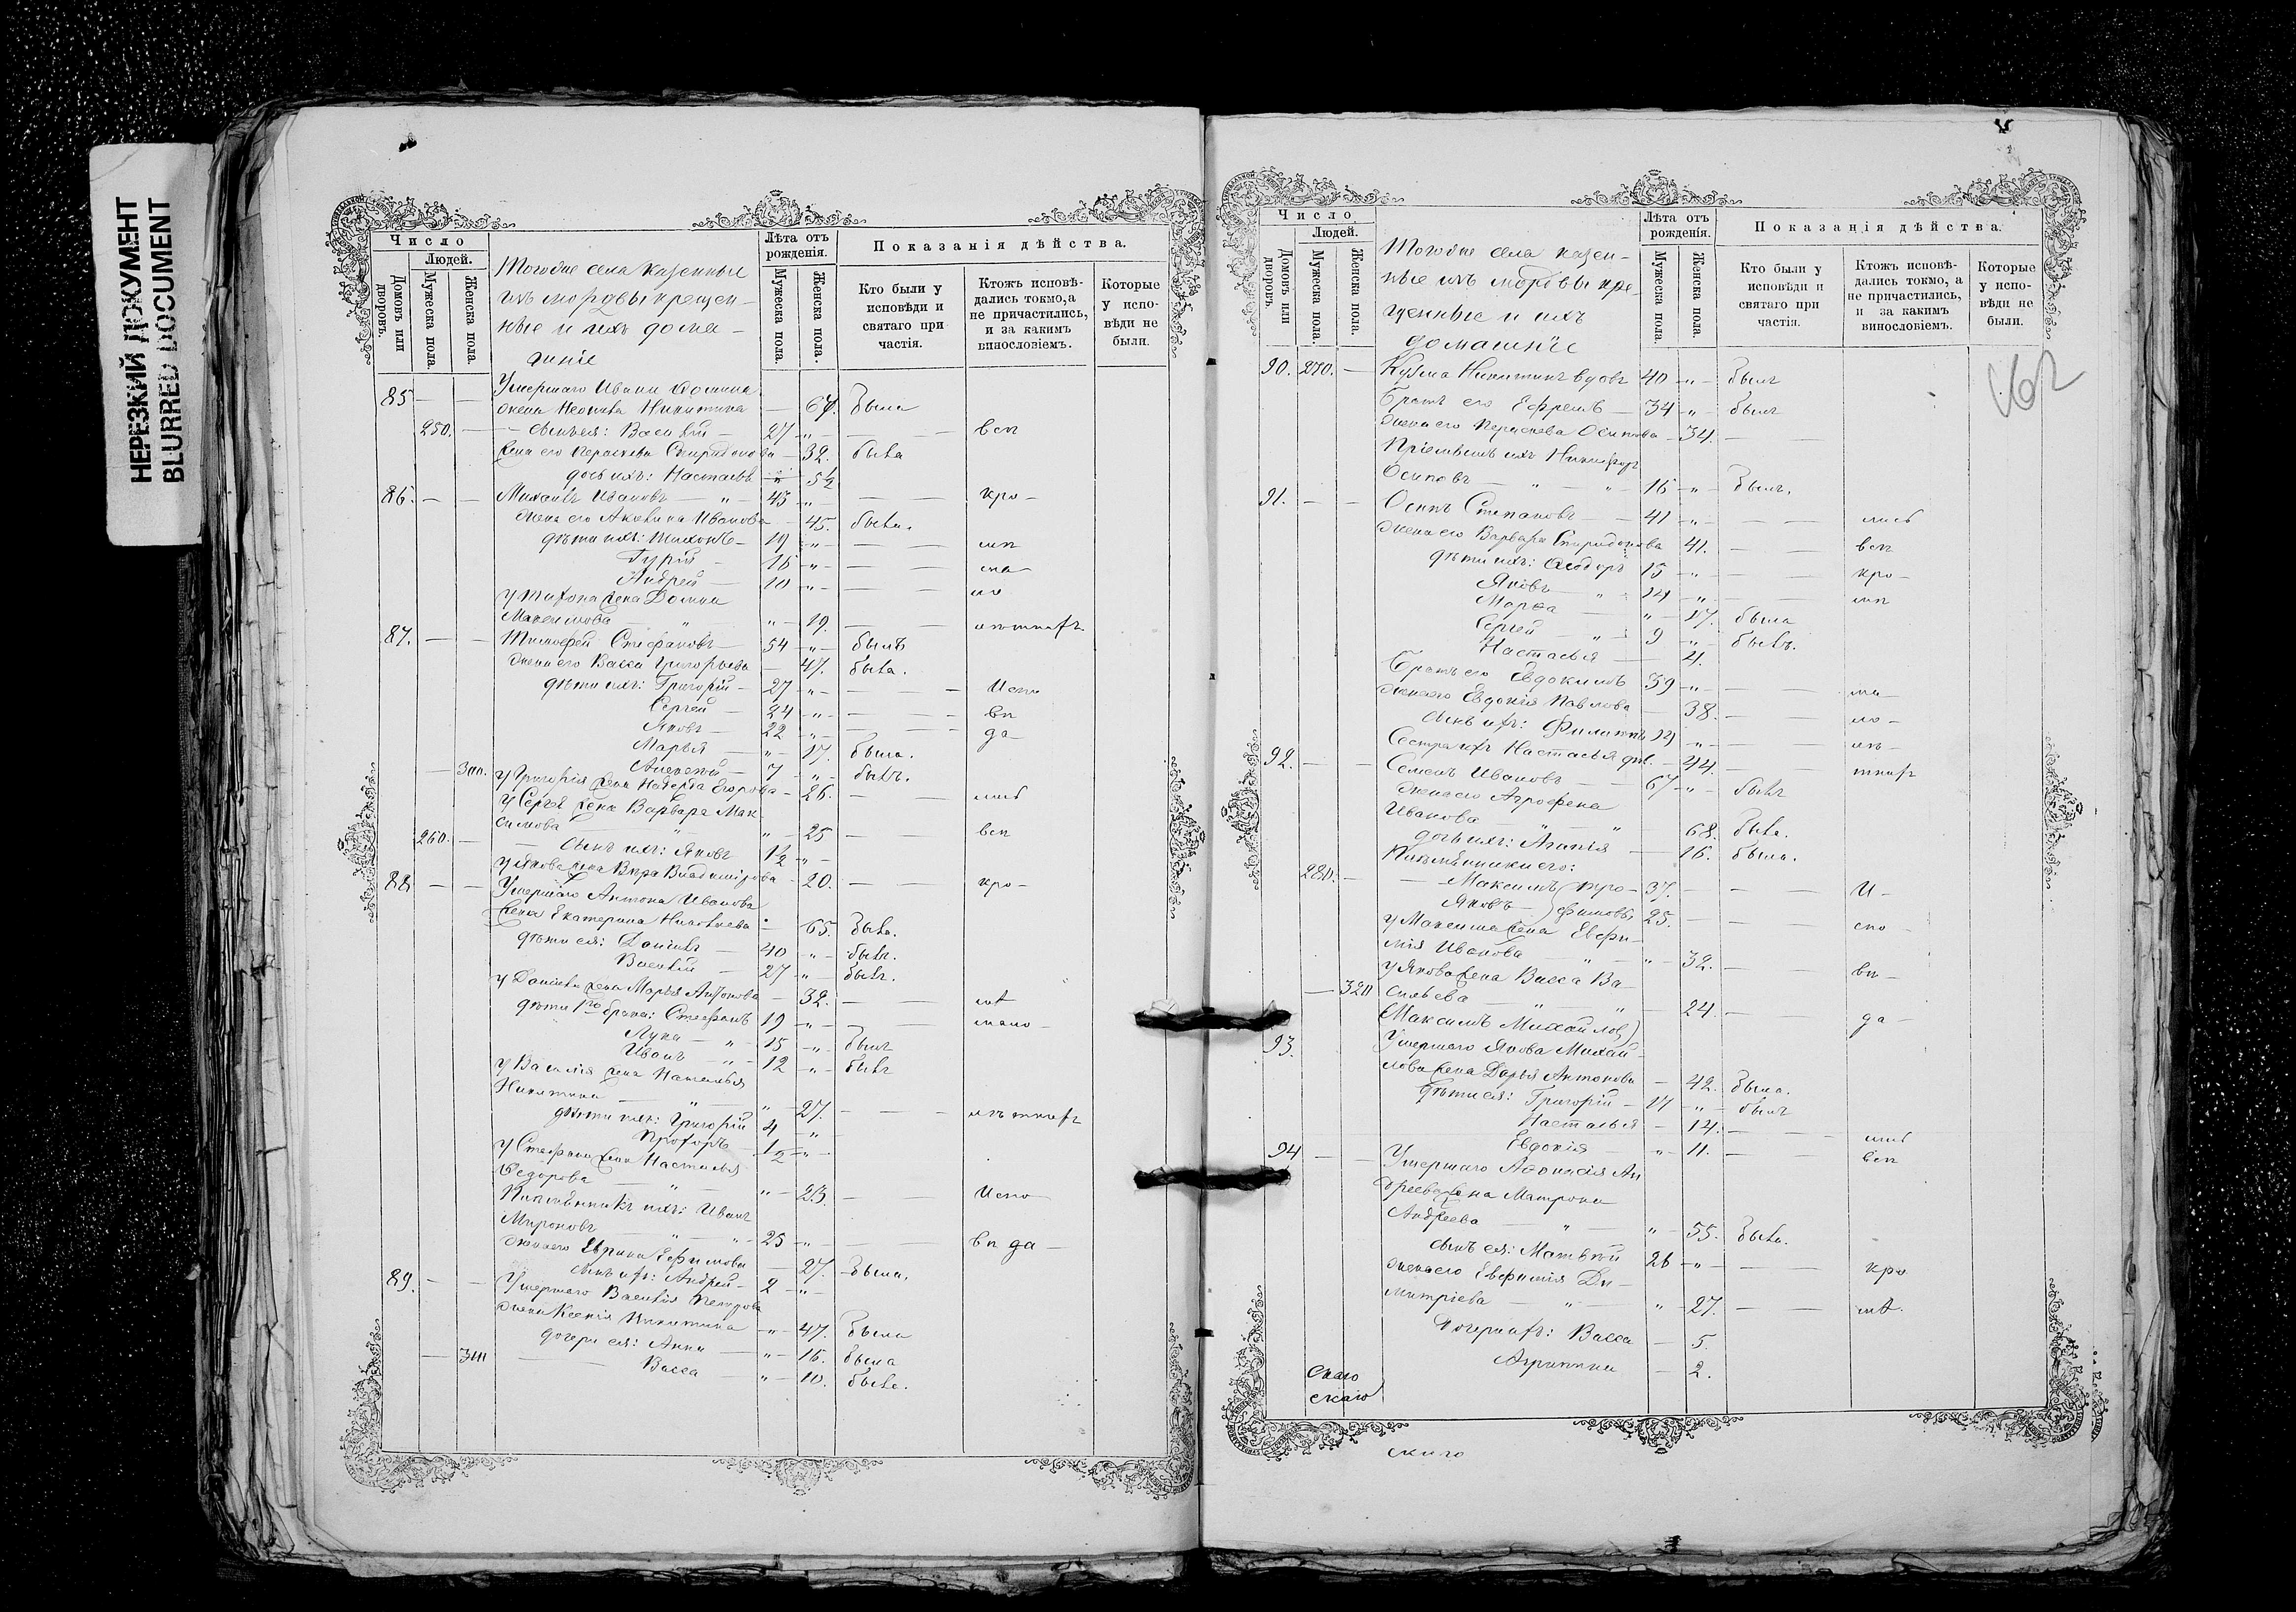 НЕРЕЗКИЙ ДОКУМЕНТ
BLURRED DOCUMENT
Число
Домовъ или дворовъ.
Людей.
Мужеска пола.
Женска пола.
Тогоже села казенные
изъ мордвы крещен-
ные и ихъ дома-
шніе
Лѣта отъ рожденія.
Мужеска пола.
Женска пола.
Показанія дѣйства.
Кто были у исповѣди и святаго при частія.
Ктожъ исповѣ-дались токмо, а не причастились, и за какимъ винословіемъ.
Которые у испо-вѣди не были.
85 — — Умершаго Ивана
жена Никитина — 64. была
250. — сынъ ея: Василій — 27 „ — — — вст
жена его Парасковья Спиридонова — 32. была
дочь ихъ: Настасья „ 5½
86. — — Михаилъ Ивановъ — „ — 43 „ — — — кро —
жена его Акилина Иванова — 45. была.
дѣти ихъ: Тихонъ — 19 „ — — —
Гурій — 16 „ — — —
Андрей — 10 „ — — —
у Тихона жена Домна
Максимова „ „ 19. — —
87. — — Тимофей Стефановъ — 54 „ былъ
жена его Васса Григорьева — 47. была.
дѣти ихъ: Григорій — 27 „ — — Испо
Сергей — 24 „ — — вп
Яковъ — 22 „ — — да —
Марья — „ 17. была.
Алексей — 7 „ былъ.
— 300. у Григорія жена Надежда Егорова — 26. — —
у Сергея жена Варвара Мак
симова „ „ 25 — — вст
260. — сынъ ихъ: Яковъ 1½ „ —
у Якова жена Вѣра Владимірова — 20. — — кро —
88 — — Умершаго Антона Иванова
жена Екатерина Николаева — 65. была.
дѣти ея: Даніилъ — 40 „ былъ.
Василій — 27 „ былъ.
у Даніила жена Марья Антонова — 32. — —
дѣти 1го брака: Стефанъ 19 „ — —
Лука — „ — 15 „ былъ
Иванъ „ — 12 „ былъ
у Василія жена Наталья
Никитина — „ „ 27. — —
дѣти ихъ: Григорій 4 „
Прохоръ 1½ „ —
у Стефана жена Настасья
Федорова — „ — „ 23. — — Испо
Племянникъ ихъ: Иванъ
Мироновъ „ „ 25 „ — — вп да —
жена его Ирина Ефимова — 27. была.
сынъ ихъ: Андрей — 2 „ —
89. — — Умершаго Василія Петрова
жена Ксенія Никитина „ 47. была
дочери ея: Анна — „ 16. была
— 310 — Васса „ 10. была.
Число
Домовъ или дворовъ.
Людей.
Мужеска пола.
Женска пола.
Тогоже села казен-
ные изъ мордвы кре-
щенные и ихъ
домашніе
Лѣта отъ рожденія.
Мужеска пола.
Женска пола.
Показанія дѣйства.
Кто были у исповѣди и святаго при частія.
Ктожъ исповѣ-дались токмо, а не причастились, и за какимъ винословіемъ.
Которые у испо-вѣди не были.
162
90. 270. — Кузма Никитинъ вдовъ 40 „ былъ
Братъ его Ефремъ — 34 „ былъ
жена его Парасковья Осипова — 34. — —
Пріемышъ ихъ Никифоръ
Осиповъ — „ „ 16 „ былъ.
91. — — Осипъ Степановъ — 41 „ — —
жена его Варвара Спиридонова 41. — — вст
дѣти ихъ: Ѳеодоръ 15 „ — — кро —
Яковъ „ 14 „ — —
Марѳа — „ 17. была
Сергей — „ 9 „ былъ.
Настасья — 4.
Братъ его Евдокимъ 39 „ — —
жена его Евдокія Павлова — 38. — —
сынъ ихъ: Филиппъ „ — —
Сестра ихъ Настасья дѣв. — 44. — —
92. — — Семенъ Ивановъ — 67 „ былъ
жена его Агрофена
Иванова „ „ 68. была.
дочь ихъ: Агапія — 16. была.
Племянники его:
280. — Максимъ } Тро- 37. — — И —
Яковъ } фимовы 25. — — спо —
у Максима жена Евфи-
мія Иванова „ „ 32. — — вп —
у Якова жена Васса Ва
— 320 сильева — „ „ 24. — — да —
(Максимъ Михайлов)
93. Умершаго Якова Михай-
лова жена Дарья Антонова — 42. была.
дѣти ея: Григорій — 17 „ былъ
Настасья — 14. — —
Евдокія — „ 11. — — вст
94 — — Умершаго Афанасія Ан
дреева жена Матрона
Андреева — „ „ 55. была.
сынъ ея: Матвѣй 26 „ — — кро
жена его Евфимія Ди-
митріева — „ „ 27. — —
дочери ихъ: Васса — 5.
Агрипина — 2.
скаго
скаго
скаго